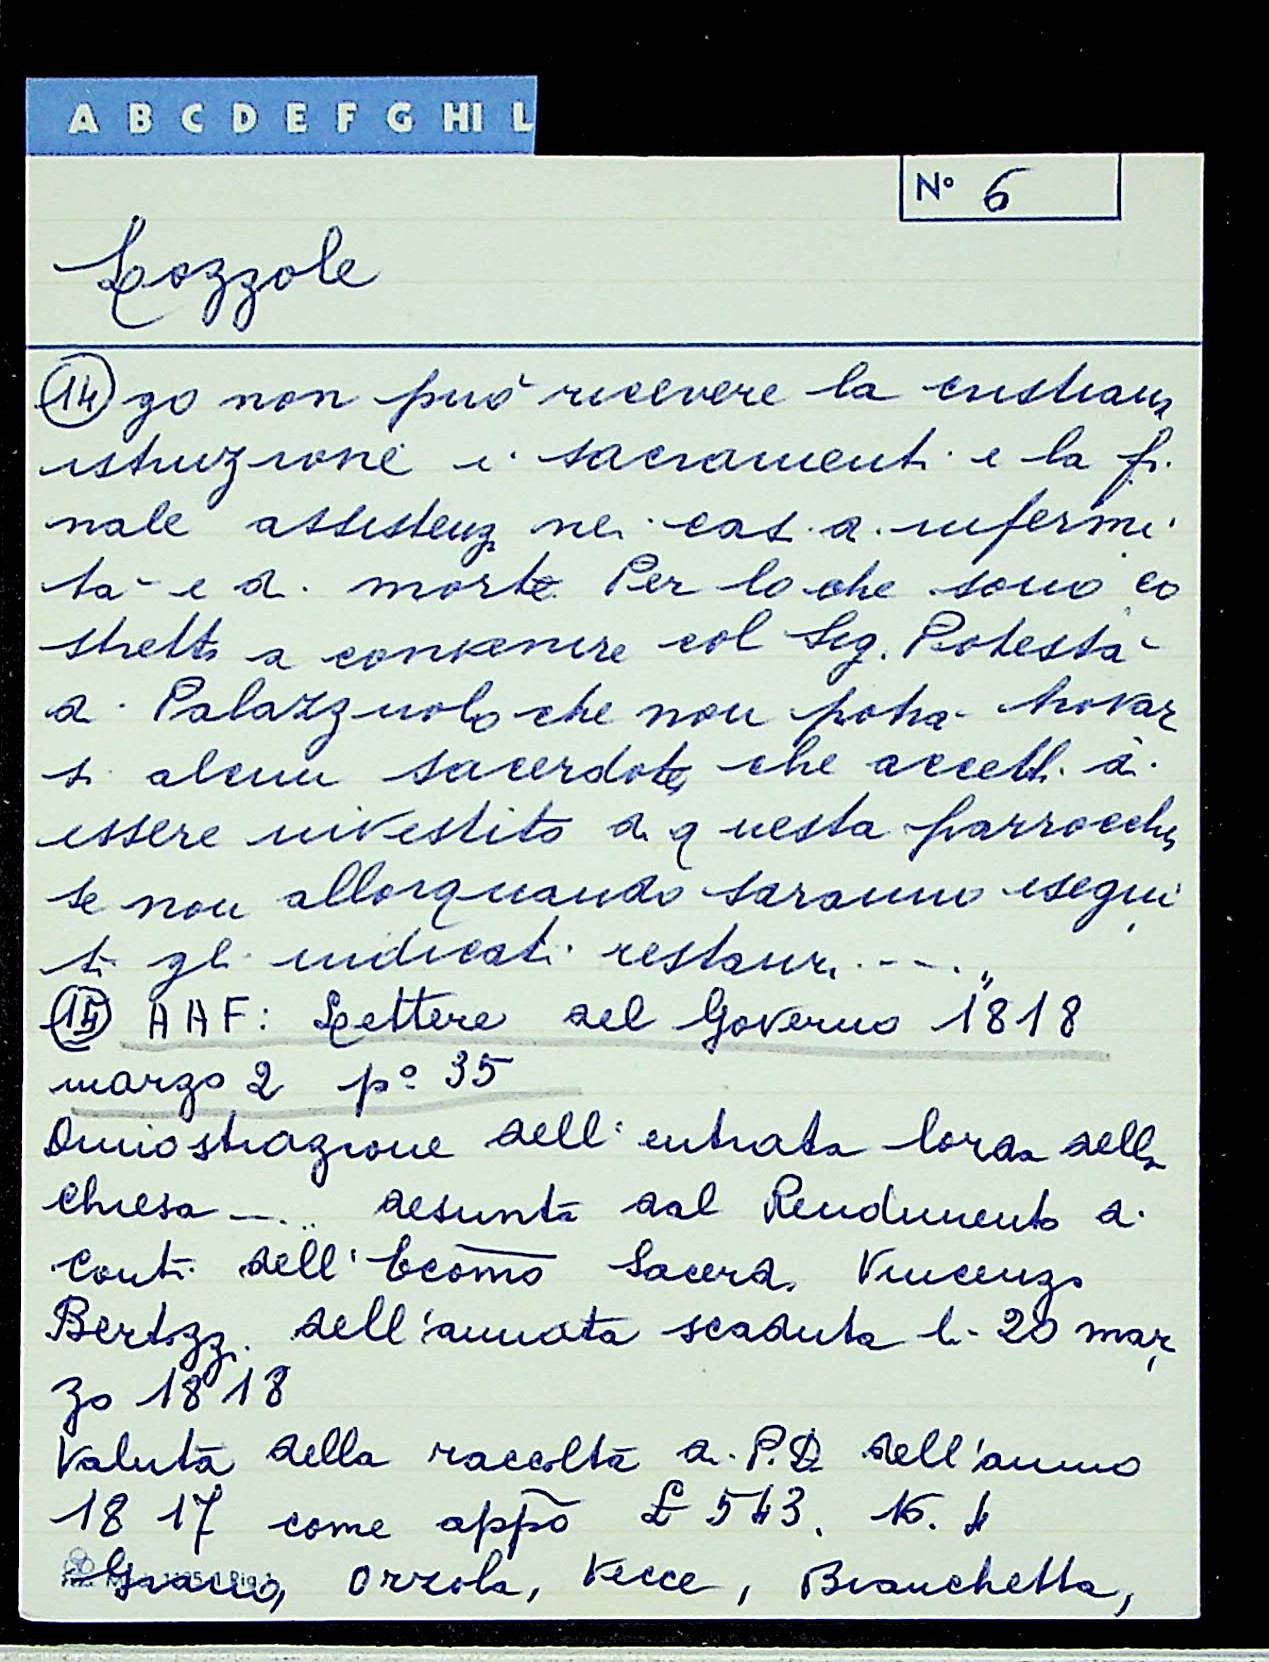 A B C D E F G HI L
N° 6
Lozzole
(14) go non può ricevere la cristiana
istruzione i sacramenti e la fi
nale assistenza nei casi di infermi
tà e di morte. Per lo che sono co
stretto a convenire col Sig. Potestà
di Palazzuolo che non potrà trovar
si alcun sacerdote che accetti di
essere investito di questa parrocchia
se non allorquando saranno esegui
ti gli indicati restauri ...."
(15) AAF: Lettere del Governo 1818
marzo 2 p° 35
Dimostrazione dell'entrata lorda della
chiesa .... desunta dal Rendimento di
conti dell'Ecōmo Sacerd. Vincenzo
Bertozzi dell'annata scaduta li 20 mar
zo 1818
Valuta della raccolta di P.D. dell'anno
1817 come appō £ 543. 16. 4
Orzola, Vecce, Bianchetta,